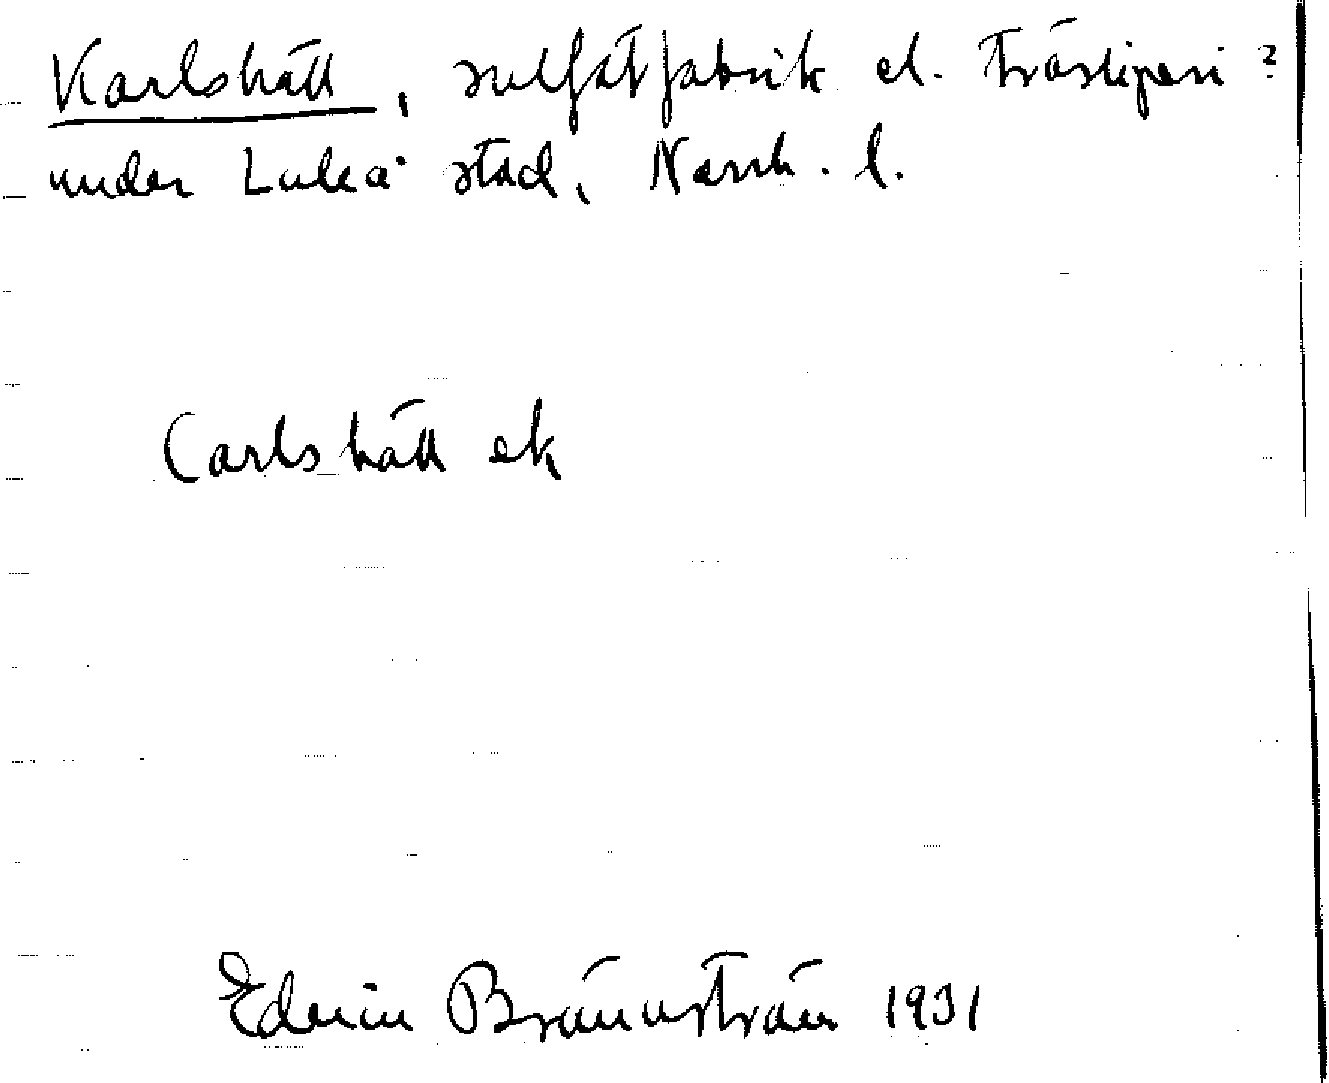 Karlshäll, sulfatfabrik el. träsliperi?
under Luleå stad, Norrb. l.
Carlshäll ek
Edvin Brännström 1931